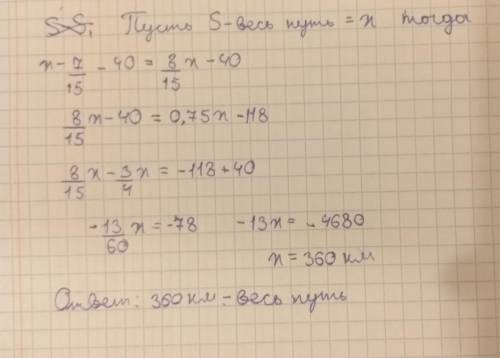 Пусть S-весь путь = x тогда
x - 7/15 - 40 = 8/15 x - 40
8/15 x - 40 = 0,75x - 118
8/15 x - 3/4 x = -118 + 40
-13/60 x = -78 -13x = -4680
x = 360 км
Ответ: 360 км - весь путь